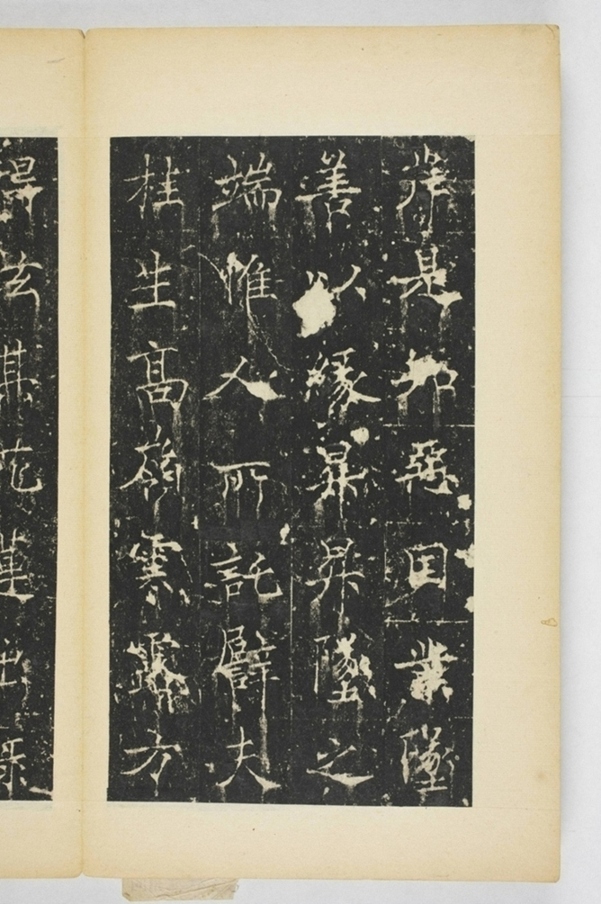 岸是知惡因業墜
善以緣昇昇墜之
端惟人所託譬夫
桂生高嶺雲露方
得泫其花蓮出淥